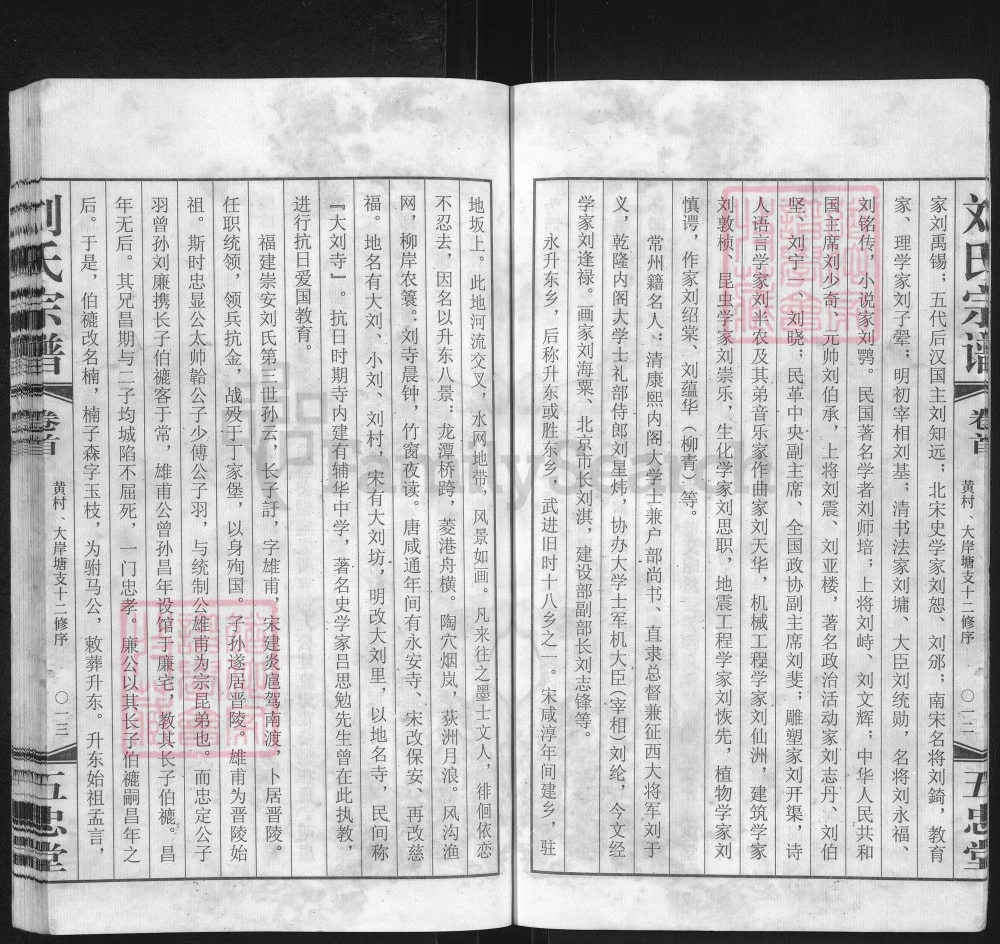 刘氏宗谱
卷首
黄村、大岸塘支十二修序
〇一二
五忠堂
家刘禹锡；五代后汉国主刘知远；北宋史学家刘恕、刘邠；南宋名将刘錡，教育
家、理学家刘子翚；明初宰相刘基；清书法家刘墉、大臣刘统勋，名将刘永福、
刘铭传，小说家刘鹗。民国著名学者刘师培；上将刘峙、刘文辉；中华人民共和
国主席刘少奇、元帅刘伯承，上将刘震、刘亚楼，著名政治活动家刘志丹、刘伯
坚、刘宁一、刘晓；民革中央副主席、全国政协副主席刘斐；雕塑家刘开渠，诗
人语言学家刘半农及其弟音乐家作曲家刘天华，机械工程学家刘仙洲，建筑学家
刘敦桢、昆虫学家刘崇乐，生化学家刘思职，地震工程学家刘恢先，植物学家刘
慎谔，作家刘绍棠、刘蕴华（柳青）等。
常州籍名人：清康熙内阁大学士兼户部尚书、直隶总督兼征西大将军刘于
义，乾隆内阁大学士礼部侍郎刘星炜，协办大学士军机大臣（宰相）刘纶，今文经
学家刘逢禄。画家刘海粟、北京市长刘淇，建设部副部长刘志锋等。
永升东乡，后称升东或胜东乡，武进旧时十八乡之一。宋咸淳年间建乡，驻
地坂上。此地河流交叉，水网地带，风景如画。凡来往之墨士文人，徘徊依恋
不忍去，因名以升东八景：龙潭桥跨，菱港舟横。陶穴烟岚，荻洲月浪。风沟渔
网，柳岸农簑。刘寺晨钟，竹窗夜读。唐咸通年间有永安寺、宋改保安、再改慈
福。地名有大刘、小刘、刘村，宋有大刘坊，明改大刘里，以地名寺，民间称
『大刘寺』。抗日时期寺内建有辅华中学，著名史学家吕思勉先生曾在此执教，
进行抗日爱国教育。
福建崇安刘氏第三世孙云，长子訏，字雄甫，宋建炎扈驾南渡，卜居晋陵。
任职统领，领兵抗金，战殁于丁家堡，以身殉国。子孙遂居晋陵。雄甫为晋陵始
祖。斯时忠显公太师韐公子少傅公子羽，与统制公雄甫为宗昆弟也。而忠定公子
羽曾孙刘廉携长子伯褫客于常，雄甫公曾孙昌年设馆于廉宅，教其长子伯褫。昌
年无后。其兄昌期与二子均城陷不屈死，一门忠孝。廉公以其长子伯褫嗣昌年之
后。于是，伯褫改名楠，楠子森字玉枝，为驸马公，敕葬升东。升东始祖孟言，
刘氏宗谱
卷首
黄村、大岸塘支十二修序
〇一三
五忠堂
FamilySearch